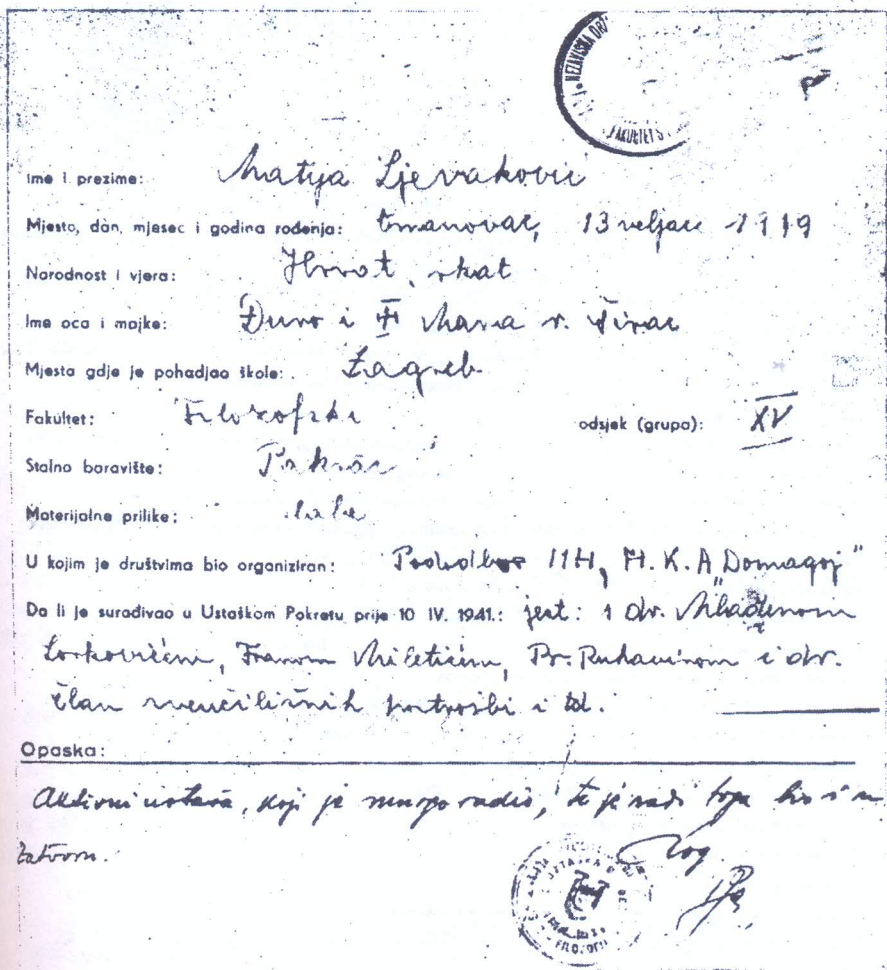 NEZAVISNA DRŽ
FAKULTETS
Ime i prezime: Matija Ljevaković
Mjesto, dan, mjesec i godina rođenja: 13 veljače 1919
Narodnost i vjera: Hrvat, rkat
Ime oca i majke: Đuro i Mara r.
Mjesta gdje je pohadjao škole: Zagreb
Fakultet: Filozofski odsjek (grupa): XV
Stalno boravište: Pakrac
Materijalne prilike: slabe
U kojim je društvima bio organiziran: H.K.A. "Domagoj"
Da li je surađivao u Ustaškom Pokretu prije 10 IV. 1941.: jest: s dr. Mladenom
Lorkovićem, Franom Miletićem, Br. Ruhavinom i dr.
član sveučilišnih i td.
Opaska:
Aktivni ustaša, koji je mnogo radio, te je radi toga bio i u
zatvoru.